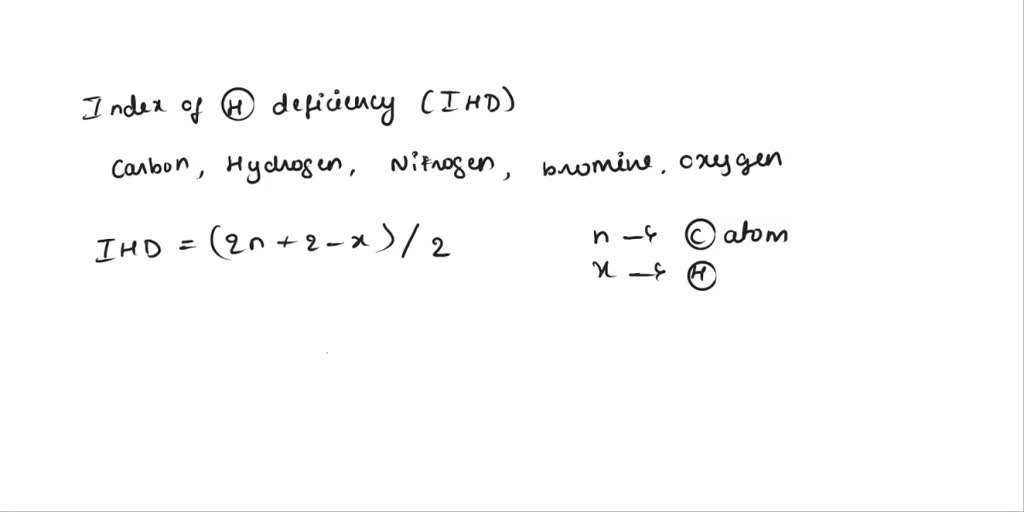 Index of H deficiency (IHD)
Carbon, Hydrogen, Nitrogen, bromine, oxygen
IHD = (2n + 2 - x) / 2
n → C atom
x → H